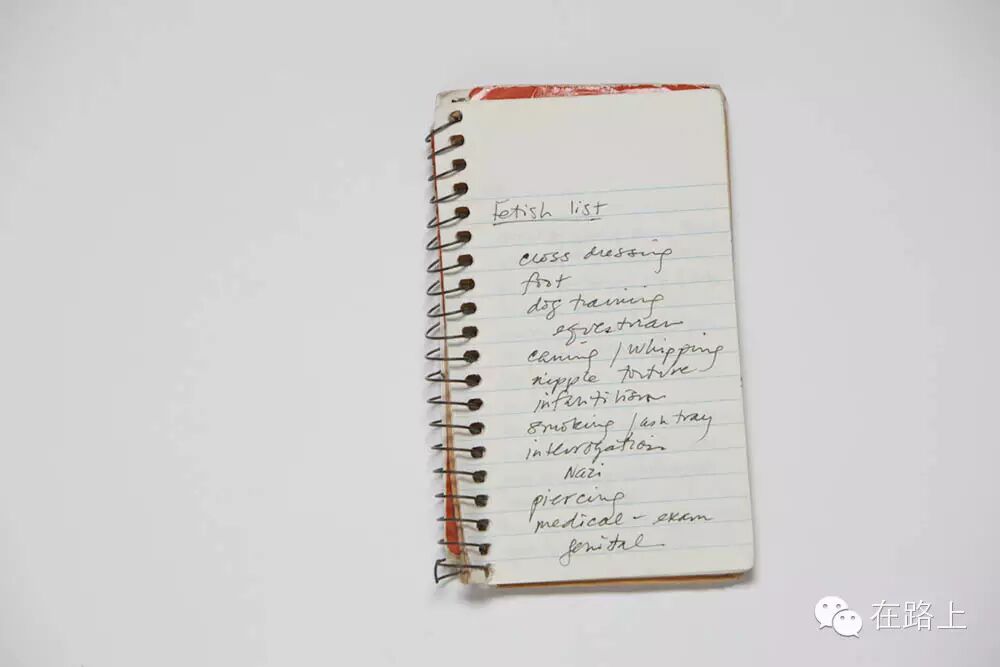 Fetish list
cross dressing
foot
dog training
equestrian
caning / whipping
nipple torture
infantilism
smoking / ash tray
interrogation
Nazi
piercing
medical - exam
genital
在路上